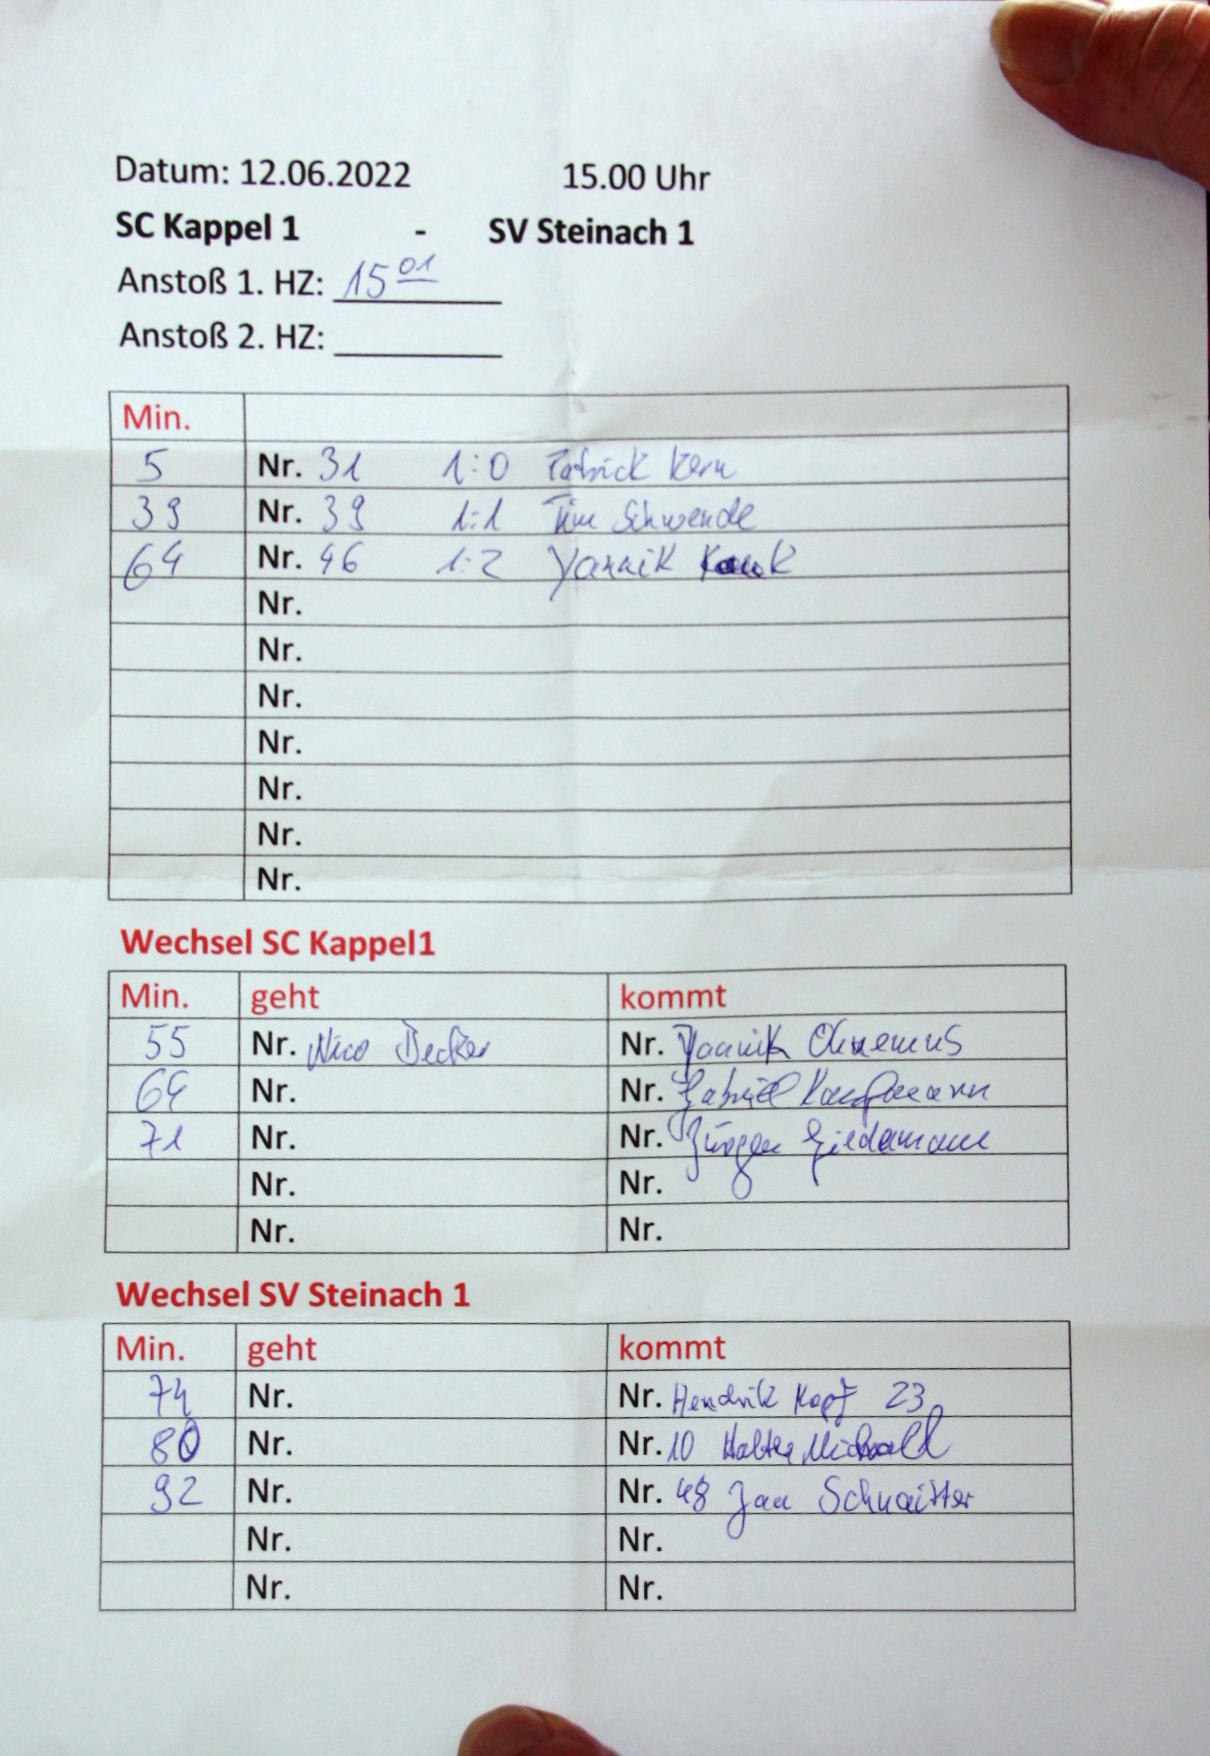 Datum: 12.06.2022 15.00 Uhr
SC Kappel 1 - SV Steinach 1
Anstoß 1. HZ: 15 01
Anstoß 2. HZ:
Min.
5 Nr. 31 1:0 Patrick Kern
39 Nr. 39 1:1 Tim Schwende
64 Nr. 46 1:2 Yannik
Nr.
Nr.
Nr.
Nr.
Nr.
Nr.
Nr.
Wechsel SC Kappel1
Min. geht kommt
55 Nr. Nico Decker Nr. Yannik Ohnemus
64 Nr. Nr. Gabriel Kaufmann
71 Nr. Nr. Jürgen Giedemann
Nr. Nr.
Nr. Nr.
Wechsel SV Steinach 1
Min. geht kommt
74 Nr. Nr. Hendrik Kopf 23
80 Nr. Nr. 10 Halter
92 Nr. Nr. 48 Jan Schnaitter
Nr. Nr.
Nr. Nr.